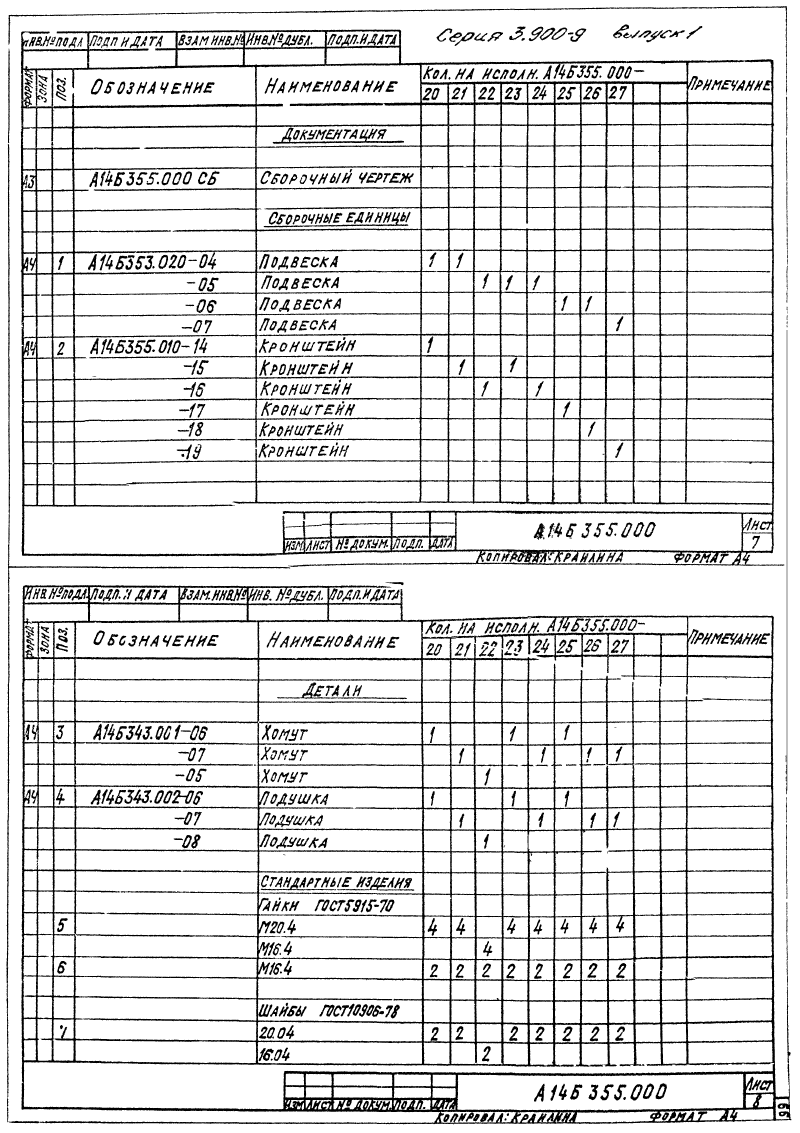 Серия 3.900-9 выпуск 1
ИНВ.№ПОДЛ ПОДП И ДАТА ВЗАМ ИНВ.№ ИНВ.№ ДУБЛ. ПОДП.И ДАТА
ФОРМАТ ЗОНА ПОЗ. ОБОЗНАЧЕНИЕ НАИМЕНОВАНИЕ КОЛ. НА ИСПОЛН. А14Б355.000- ПРИМЕЧАНИЕ
20 21 22 23 24 25 26 27
ДОКУМЕНТАЦИЯ
А3 А14Б355.000 СБ СБОРОЧНЫЙ ЧЕРТЕЖ
СБОРОЧНЫЕ ЕДИНИЦЫ
А4 1 А14Б353.020-04 ПОДВЕСКА 1 1
-05 ПОДВЕСКА 1 1 1
-06 ПОДВЕСКА 1 1
-07 ПОДВЕСКА 1
А4 2 А14Б355.010-14 КРОНШТЕЙН 1
-15 КРОНШТЕЙН 1 1
-16 КРОНШТЕЙН 1 1
-17 КРОНШТЕЙН 1
-18 КРОНШТЕЙН 1
-19 КРОНШТЕЙН 1
А14Б 355.000
ЛИСТ
7
ИЗМ ЛИСТ № ДОКУМ. ПОДП. ДАТА
КОПИРОВАЛ: КРАИЛИНА ФОРМАТ А4
ИНВ.№ПОДЛ. ПОДП. И ДАТА ВЗАМ.ИНВ.№ ИНВ. № ДУБЛ. ПОДП.И ДАТА
ФОРМАТ ЗОНА ПОЗ. ОБОЗНАЧЕНИЕ НАИМЕНОВАНИЕ КОЛ. НА ИСПОЛН. А14Б355.000- ПРИМЕЧАНИЕ
20 21 22 23 24 25 26 27
ДЕТАЛИ
А4 3 А14Б343.001-06 ХОМУТ 1 1 1
-07 ХОМУТ 1 1 1 1
-05 ХОМУТ 1
А4 4 А14Б343.002-06 ПОДУШКА 1 1 1
-07 ПОДУШКА 1 1 1 1
-08 ПОДУШКА 1
СТАНДАРТНЫЕ ИЗДЕЛИЯ
ГАЙКИ ГОСТ5915-70
5 М20.4 4 4 4 4 4 4 4
М16.4 4
6 М16.4 2 2 2 2 2 2 2 2
ШАЙБЫ ГОСТ10906-78
7 20.04 2 2 2 2 2 2 2
16.04 2
А14Б 355.000
ЛИСТ
8
ИЗМ ЛИСТ № ДОКУМ. ПОДП. ДАТА
КОПИРОВАЛ: КРАИЛИНА ФОРМАТ А4
66